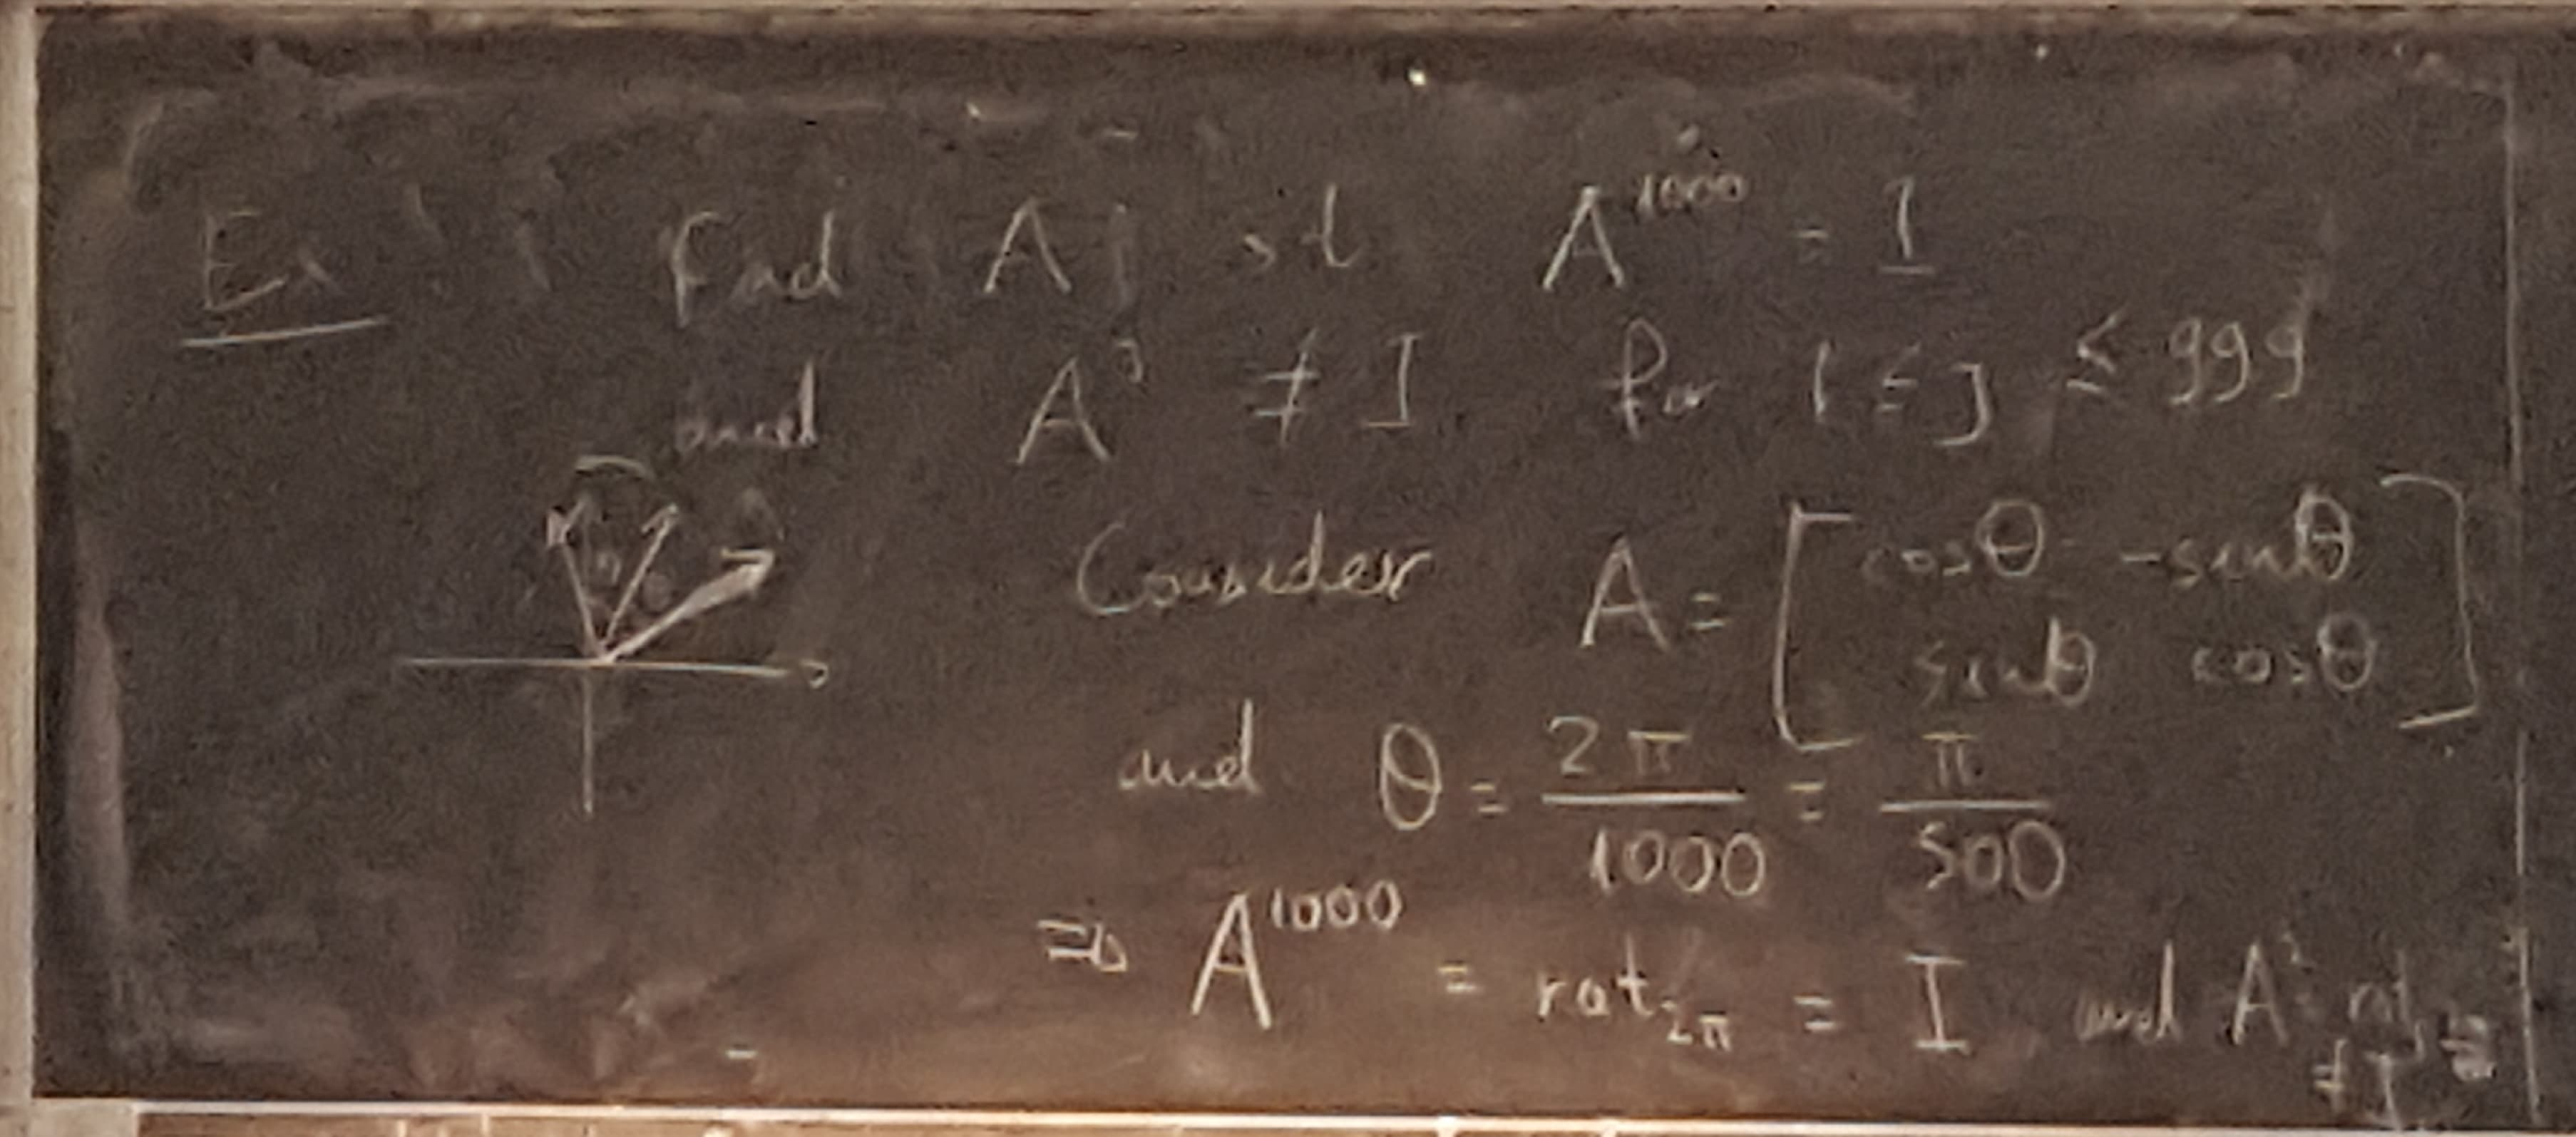 Ex Find A st A^1000 = I
and A^j ≠ I for 1 ≤ j ≤ 999
Consider A = [cosθ -sinθ
sinθ cosθ]
and θ = 2π/1000 = π/500
⇒ A^1000 = rot_2π = I and A^j = rot
≠ I